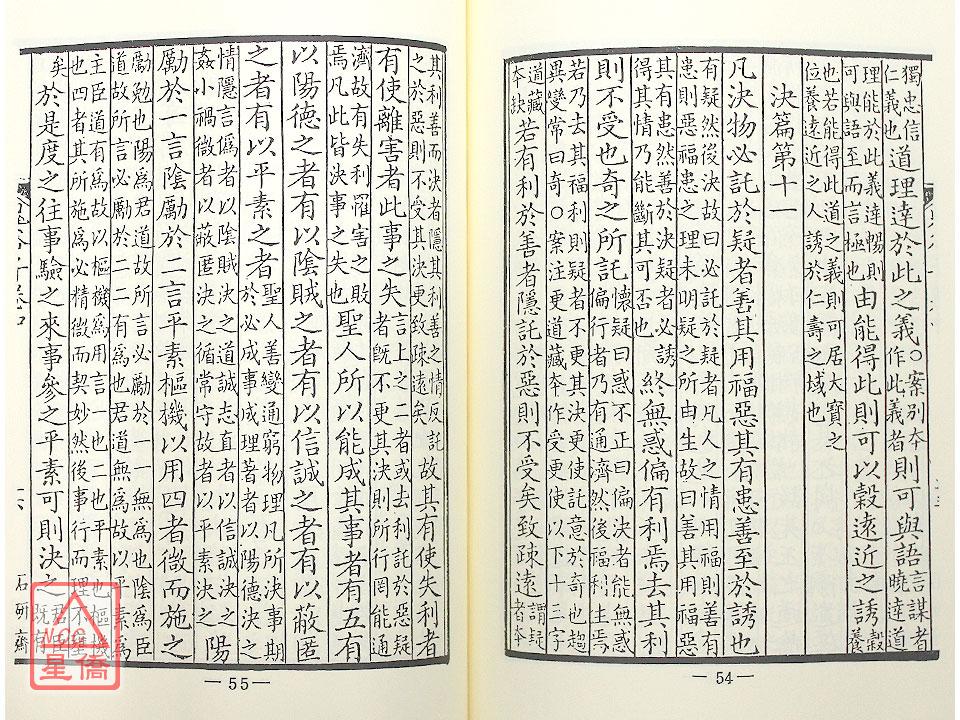 獨忠信仁義也道理達於此之義○案別本作此義者則可與語言謀者曉達道
理能於此義達暢則可與語至而言極也由能得此則可以穀遠近之誘穀養
也若能得此道之義則可居大寶之位養遠近之人誘於仁壽之域也
決篇第十一
凡決物必託於疑者善其用福惡其有患善至於誘也
有疑然後決故曰必託於疑者凡人之情用福則善有患則惡福患之理未明疑之所由生故曰善其用福惡
其有患然善於決疑者必誘得其情乃能斷其可否也終無惑偏有利焉去其利
則不受也奇之所託懷疑曰惑不正曰偏決者能無惑偏行者乃有通濟然後福利生焉
若乃去其福利則疑者不更其決更使託意於奇也趨異變常曰奇○案注更道藏本作受更使以下十三字
道藏本缺若有利於善者隱託於惡則不受矣致疎遠謂疑者本
54
其利善而決者隱其利善之情反託之於惡則不受其決更致疎遠矣故其有使失利者
有使離害者此事之失言上之二者或去利託於惡疑者既不更其決則所行罔能通
濟故有失利罹害之敗焉凡此皆決事之失也聖人所以能成其事者有五有
以陽德之者有以陰賊之者有以信誠之者有以蔽匿
之者有以平素之者聖人善變通窮物理凡所決事期於必成事成理著者以陽德決之
情隱言僞者以陰賊決之道誠志直者以信誠決之姦小禍微者以蔽匿決之循常守故者以平素決之陽
勵於一言陰勵於二言平素樞機以用四者微而施之
勵勉也陽爲君道故所言必勵於一一無爲也陰爲臣道故所言必勵於二二有爲也君道無爲故以平素爲
主臣道有爲故以樞機爲用言一也二也平素也樞機也四者其所施爲必精微而契妙然後事行而理不壅
矣於是度之往事驗之來事參之平素可則決之君臣既有
石研齋
55
NCC
星僑